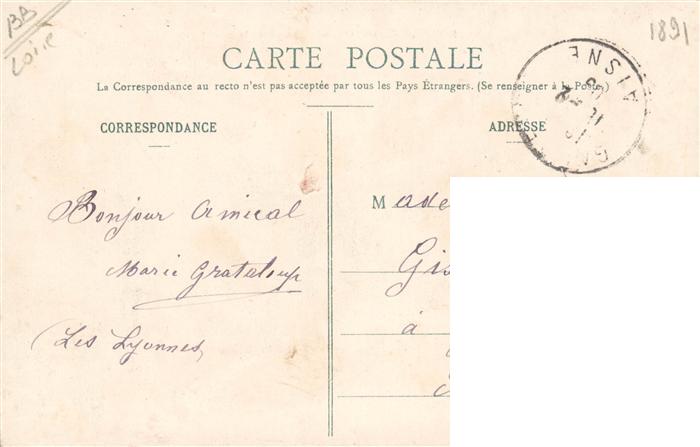 BB
Loire
1891
CARTE POSTALE
La Correspondance au recto n'est pas acceptée par tous les Pays Étrangers. (Se renseigner à la Poste.)
CORRESPONDANCE
ADRESSE
AISNE
Bonjour amical
Marie Grateloup
Les Lyonnes
M
Gis
à